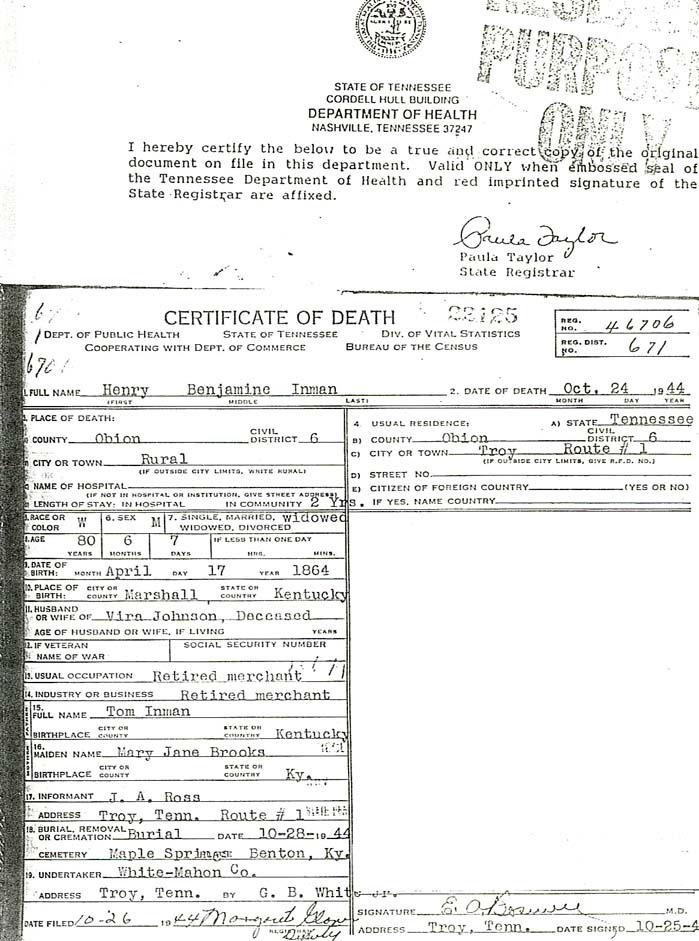 PURPOSE
ONLY
STATE OF TENNESSEE
CORDELL HULL BUILDING
DEPARTMENT OF HEALTH
NASHVILLE, TENNESSEE 37247
I hereby certify the below to be a true and correct copy of the original
document on file in this department. Valid ONLY when embossed seal of
the Tennessee Department of Health and red imprinted signature of the
State Registrar are affixed.
Paula Taylor
Paula Taylor
State Registrar
CERTIFICATE OF DEATH 22125
REG. NO. 46706
DEPT. OF PUBLIC HEALTH STATE OF TENNESSEE DIV. OF VITAL STATISTICS
COOPERATING WITH DEPT. OF COMMERCE BUREAU OF THE CENSUS
REG. DIST. NO. 671
1. FULL NAME Henry Benjamine Inman 2. DATE OF DEATH Oct. 24 1944
(FIRST MIDDLE LAST) MONTH DAY YEAR
PLACE OF DEATH:
COUNTY Obion CIVIL DISTRICT 6
CITY OR TOWN Rural
(IF OUTSIDE CITY LIMITS, WRITE RURAL)
NAME OF HOSPITAL
(IF NOT IN HOSPITAL OR INSTITUTION, GIVE STREET ADDRESS)
LENGTH OF STAY: IN HOSPITAL IN COMMUNITY 2 Yrs.
4. USUAL RESIDENCE: A) STATE Tennessee
B) COUNTY Obion CIVIL DISTRICT 6
C) CITY OR TOWN Troy Route # 1
(IF OUTSIDE CITY LIMITS, GIVE R.F.D. NO.)
D) STREET NO.
E) CITIZEN OF FOREIGN COUNTRY (YES OR NO)
IF YES, NAME COUNTRY
RACE OR COLOR W 6. SEX M 7. SINGLE, MARRIED, WIDOWED, DIVORCED widowed
AGE 80 6 7 IF LESS THAN ONE DAY
YEARS MONTHS DAYS HRS. MINS.
9. DATE OF BIRTH: MONTH April DAY 17 YEAR 1864
10. PLACE OF BIRTH: CITY OR COUNTY Marshall STATE OR COUNTRY Kentucky
11. HUSBAND OR WIFE OF Vira Johnson, Deceased
AGE OF HUSBAND OR WIFE, IF LIVING YEARS
12. IF VETERAN NAME OF WAR SOCIAL SECURITY NUMBER
13. USUAL OCCUPATION Retired merchant
14. INDUSTRY OR BUSINESS Retired merchant
15. FULL NAME Tom Inman
BIRTHPLACE CITY OR COUNTY STATE OR COUNTRY Kentucky
16. MAIDEN NAME Mary Jane Brooks
BIRTHPLACE CITY OR COUNTY STATE OR COUNTRY Ky.
17. INFORMANT J. A. Ross
ADDRESS Troy, Tenn. Route # 1
18. BURIAL, REMOVAL OR CREMATION Burial DATE 10-28-1944
CEMETERY Maple Springs Benton, Ky.
19. UNDERTAKER White-Mahon Co.
ADDRESS Troy, Tenn. BY G. B. White Jr.
DATE FILED 10-26 1944 Deputy
SIGNATURE M.D.
ADDRESS Troy, Tenn. DATE SIGNED 10-25-4